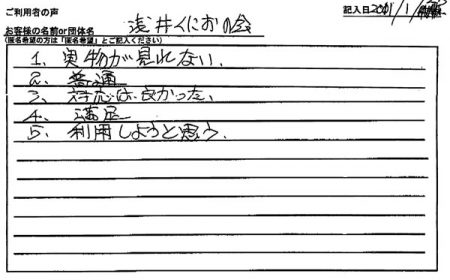 ご利用者の声
記入日2001/1/
お客様の名前or団体名 浅井くにおの会
(匿名希望の方は「匿名希望」とご記入ください)
1、実物が見れない、
2、普通
3、対応は良かった、
4、満足
5、利用しようと思う、